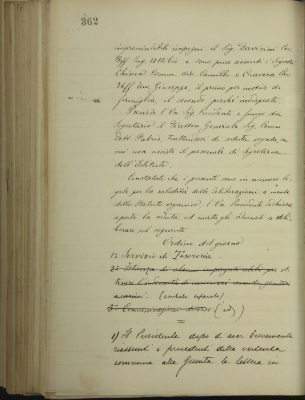 362
imprescindibili impegni il Sig. Davicini Cav.
Uff. Rag. Attilio e sono pure assenti i Signori
Chinici Comm. Avv. Camillo e Cravera Cav.
Uff. Giuseppe, il primo per motivi di
famiglia, il secondo perchè indisposto.
Presiede l'On. Sig. Presidente e funge da
Segretario il Direttore Generale Sig. Comm.
Dott. Fabris, trattandosi di seduta segreta a
cui non assiste il personale di Segreteria
dell'Istituto.
Constatato che i presenti sono in numero le-
gale per la validità delle deliberazioni a mente
dello Statuto organico, l'On. Presidente dichiara
aperta la seduta ed invita gli adunati a deli-
berare sul seguente
Ordine del giorno
1º Servizio di Tesoreria
2º Istanza di alcuni impiegati per ot-
tenere l'indennità di
(verbale separato)
3º Comunicazioni diverse (id)
1) Il Presidente dopo di aver brevemente
riassunti i precedenti della vertenza
comunica alla Giunta la lettera in